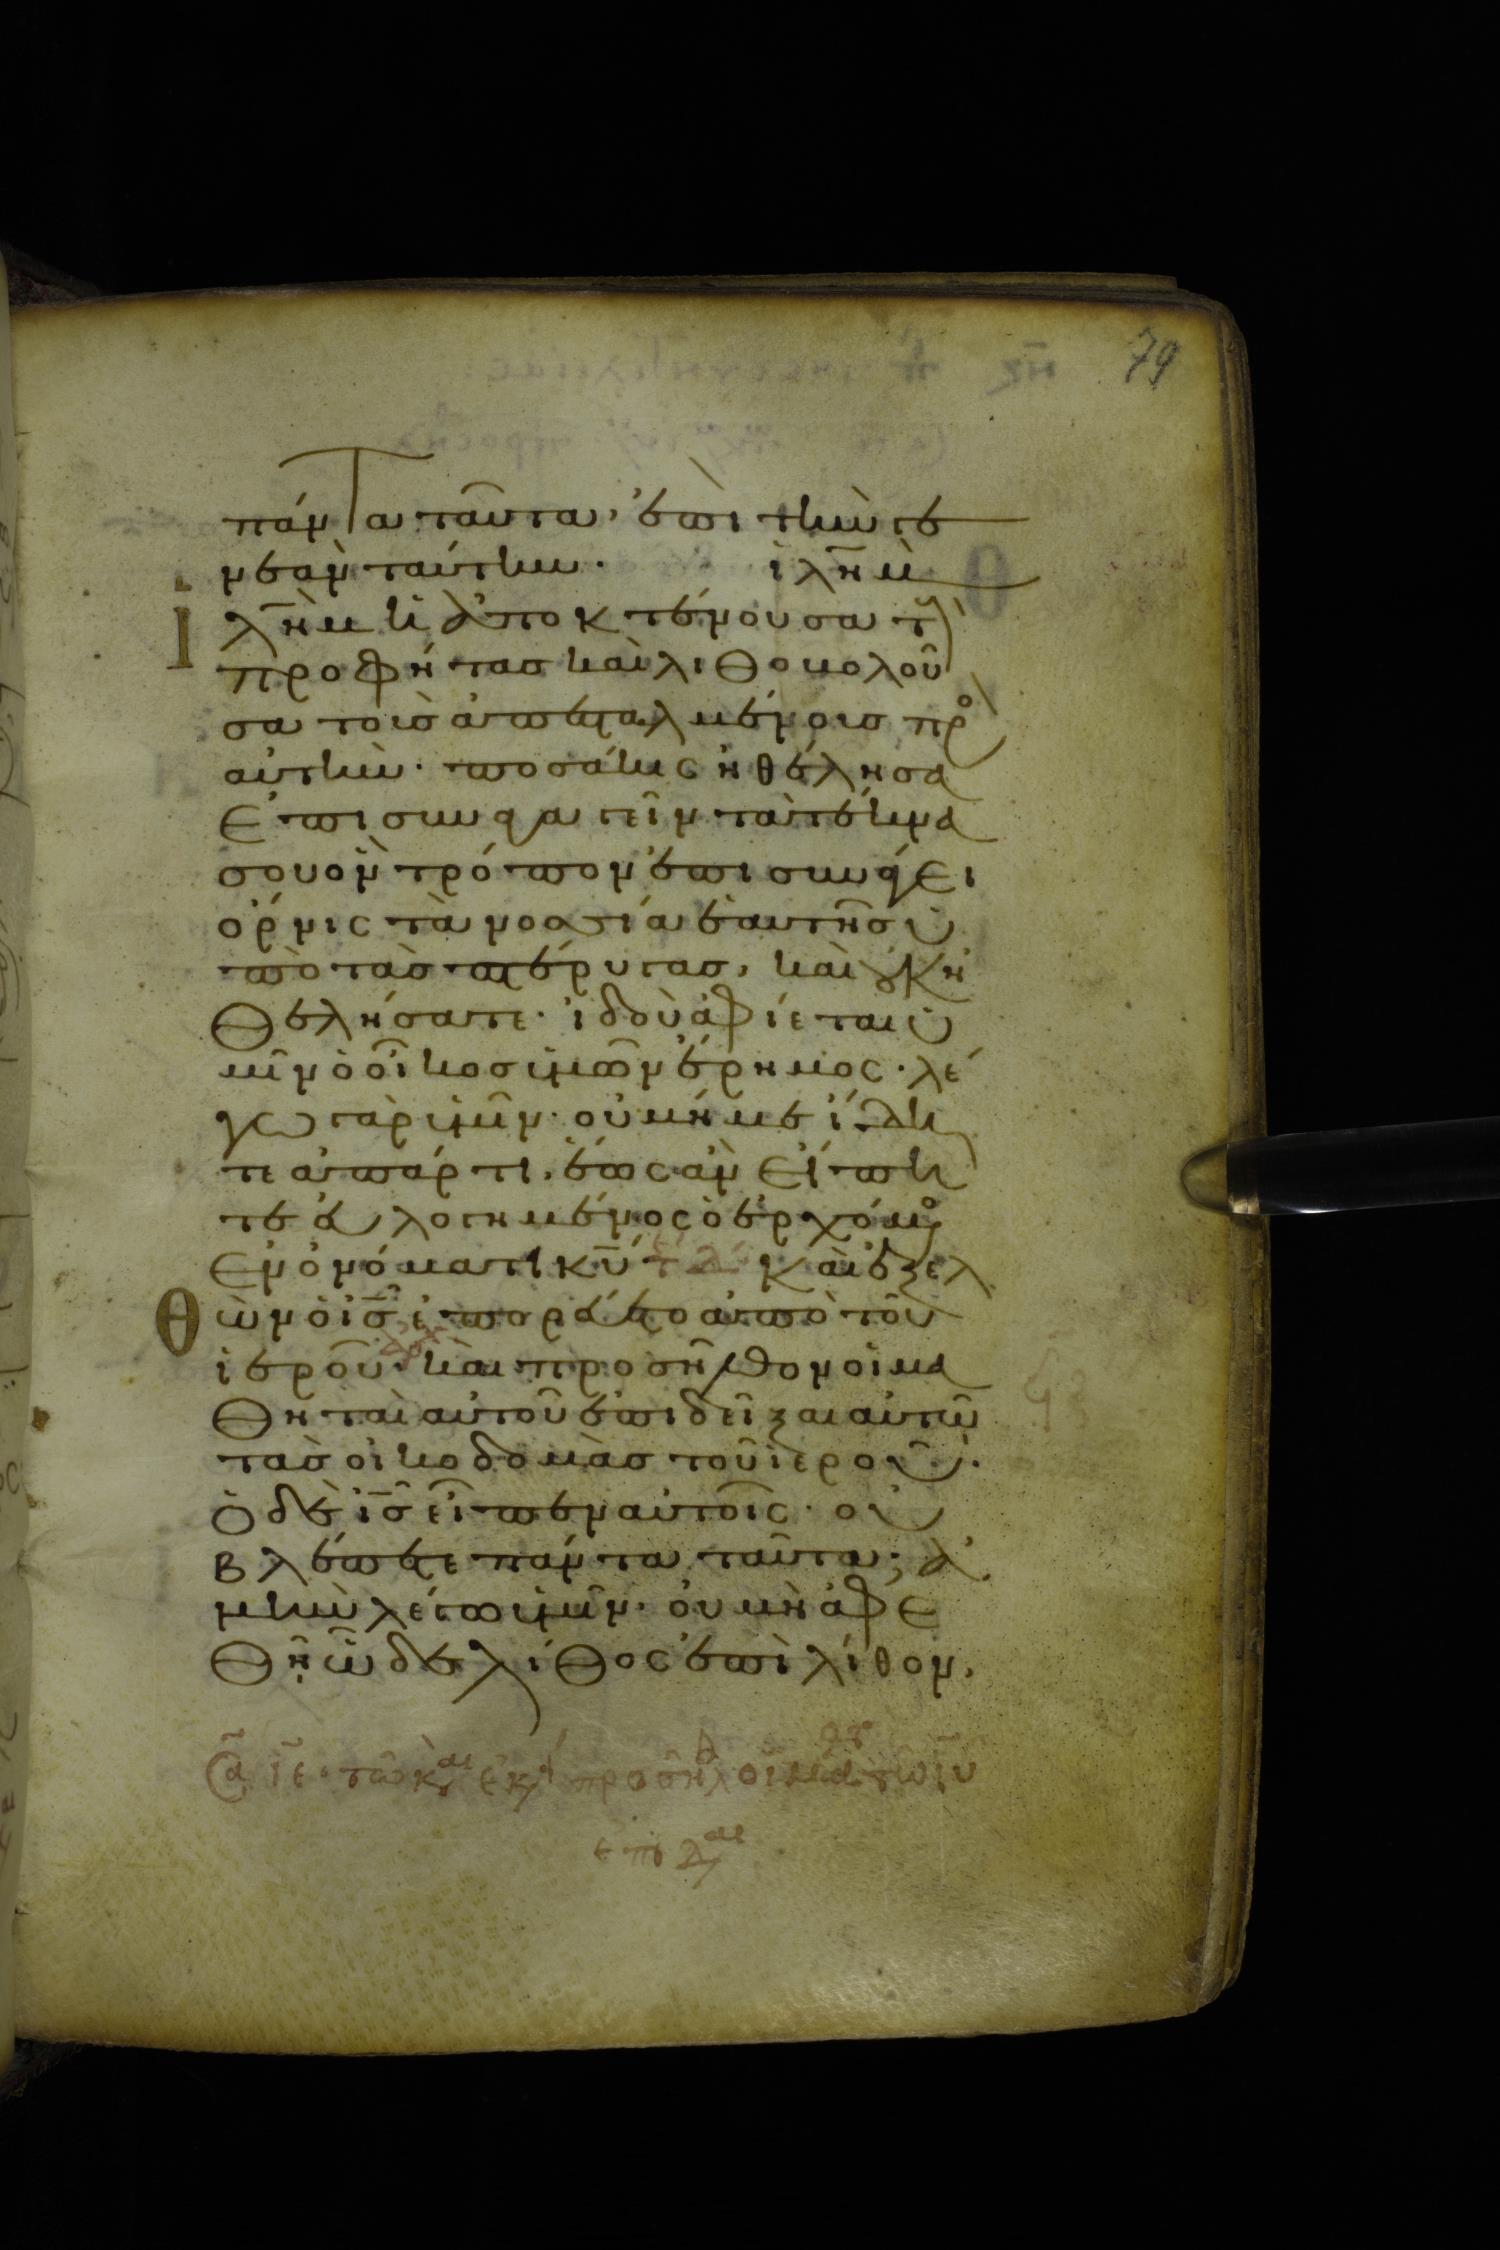 79
πάντα ταῦτα, ἐπὶ τὴν γε
νεὰν ταύτην. ἰλη̄μ̀
Ἰλη̄μ ἡ ἀποκτένουσα τ(οὺς)
προφήτας καὶ λιθοβολοῦ
σα τοὺς ἀπεσταλμένους πρ(ὸς)
αὐτὴν· ποσάκις ἠθέλησα
ἐπισυναγαγεῖν τὰ τέκνα
σου ὃν τρόπον ἐπισυνάγει
ὄρνις τὰ νοσσία ἑαυτῆς ὑ
πὸ τὰς πτέρυγας, καὶ οὐκ ἠ
θελήσατε· ἰδοὺ ἀφίεται ὑ
μῖν ὁ οἶκος ὑμῶν ἔρημος· λέ
γω γὰρ ὑμῖν· οὐ μή με ἴδη
τε ἀπάρτι, ἕως ἂν εἴπη
τε εὐλογημένος ὁ ἐρχόμ(εν)ο(ς)
ἐν ὀνόματι κ̄ῡ τέλ καὶ ἐξελ
θὼν ὁ ῑς̄ ἐπορεύετο ἀπὸ τοῦ
ἱεροῦ· καὶ προσῆλθον οἱ μα
θηταὶ αὐτοῦ ἐπιδεῖξαι αὐτῶ
τὰς οἰκοδομὰς τοῦ ἱεροῦ·
ὁ δὲ ῑς̄ εἶπεν αὐτοῖς· οὐ
βλέπετε πάντα ταῦτα; ἀ
μὴν λέγω ὑμῖν· οὐ μὴ ἀφε
θῆ ὧδε λίθος ἐπὶ λίθον,